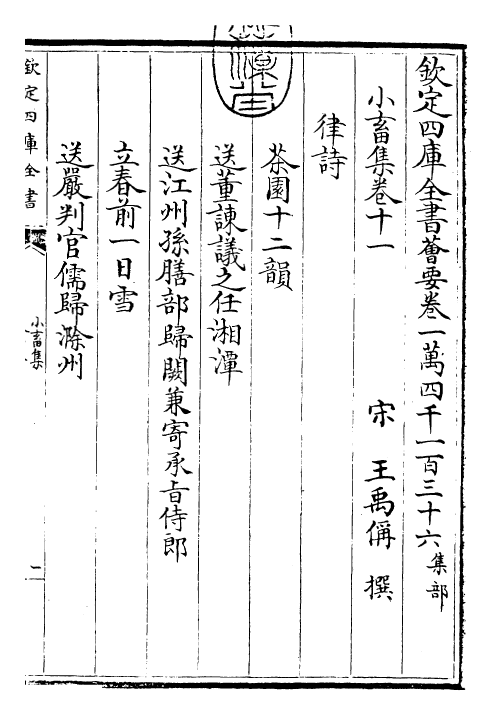 欽定四庫全書薈要卷一萬四千一百三十六集部
小畜集卷十一
宋 王禹偁 撰
律詩
茶園十二韻
送董諫議之任湘潭
送江州孫膳部歸闕兼寄承㫖侍郎
立春前一日雪
送嚴判官儒歸滁州
欽定四庫全書
小畜集
二